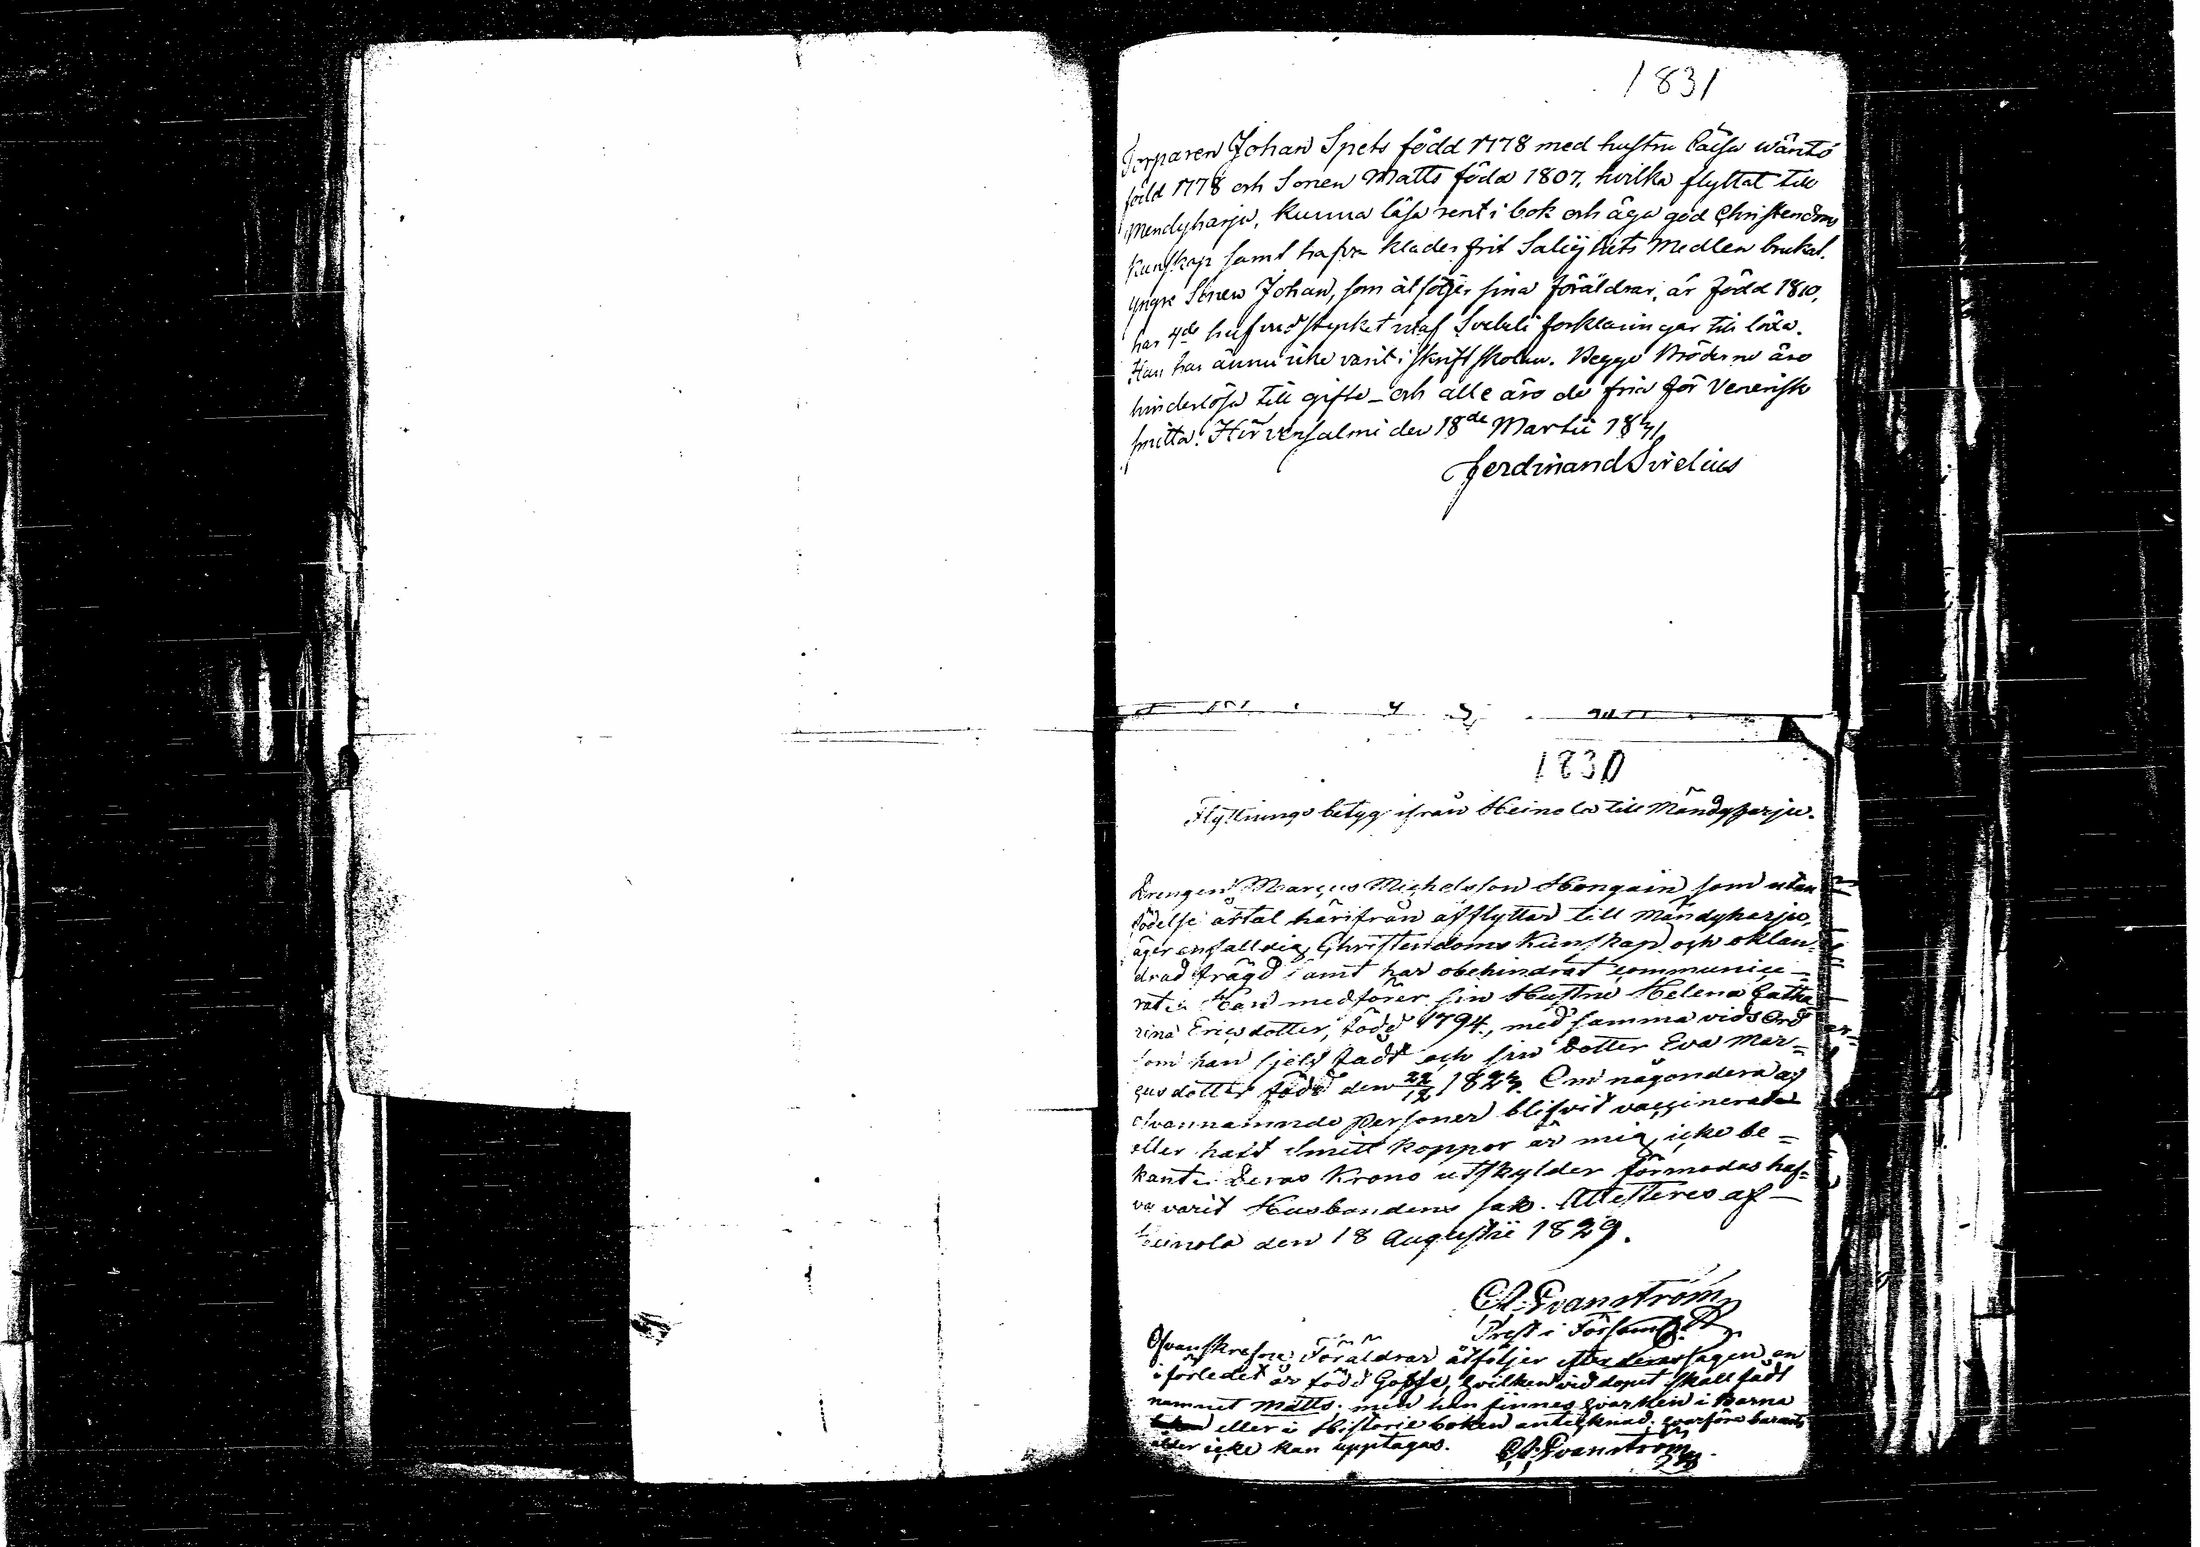 1831
Torparen Johan Spets född 1778 med hustru Caisa Wäntö
född 1778 och Sonen Matts född 1807, hvilka flyttat till
Mendyharju, kunna läsa rent i bok och äga god Christendoms
kunskap samt hafva klander frit Salighets Medlen brukat.
yngre Sonen Johan, som åtföljer sina föräldrar, är född 1810,
har 4de hufvudstycket utaf Svebeli förklaringar till läxa.
Han har ännu icke varit i Skriftskolan. Begge Bröderne äro
hinderlösa till gifte – och alle äro de fria för Venerisk
smitta. Hirvensalmi den 18de Martii 1831
Ferdinand Sirelius
1830
Flyttnings betyg ifrån Heinola till Mändyharju.
Drengen Marcus Michelsson Hongain som utan
födelse årtal härifrån afflyttar till Mändyharju,
äger enfalldig Christendoms Kunskap och oklan-
drad frägd samt har obehindrat communice-
rat. Han medförer sin Hustru Helena Catha
rina Ericsdotter, född 1794, med samma vidsord
som han sjelf fådt och sin dotter Eva Mar-
cusdotter född den 22/12 1823. Om någondera af
ofvannämnde Personer blifvit vaccinerade
eller haft Smitt koppor är mig icke be-
kant. Deras Krono utskylder förmodas haf-
va varit Husbondens sak. Attesteres af –
Heinola den 18 Augustii 1829.
C A Evanström
Prest i Förs
Ofvanskrefne Föräldrar åtföljer efter deras sagen en
i förledet år född Gosse, hvilken vid dopet skall fådt
namnet Matts. men han finnes hvarken i Barna
eller i Historie boken antecknad, hvarföre
eller icke kan upptagas. C A Evanström